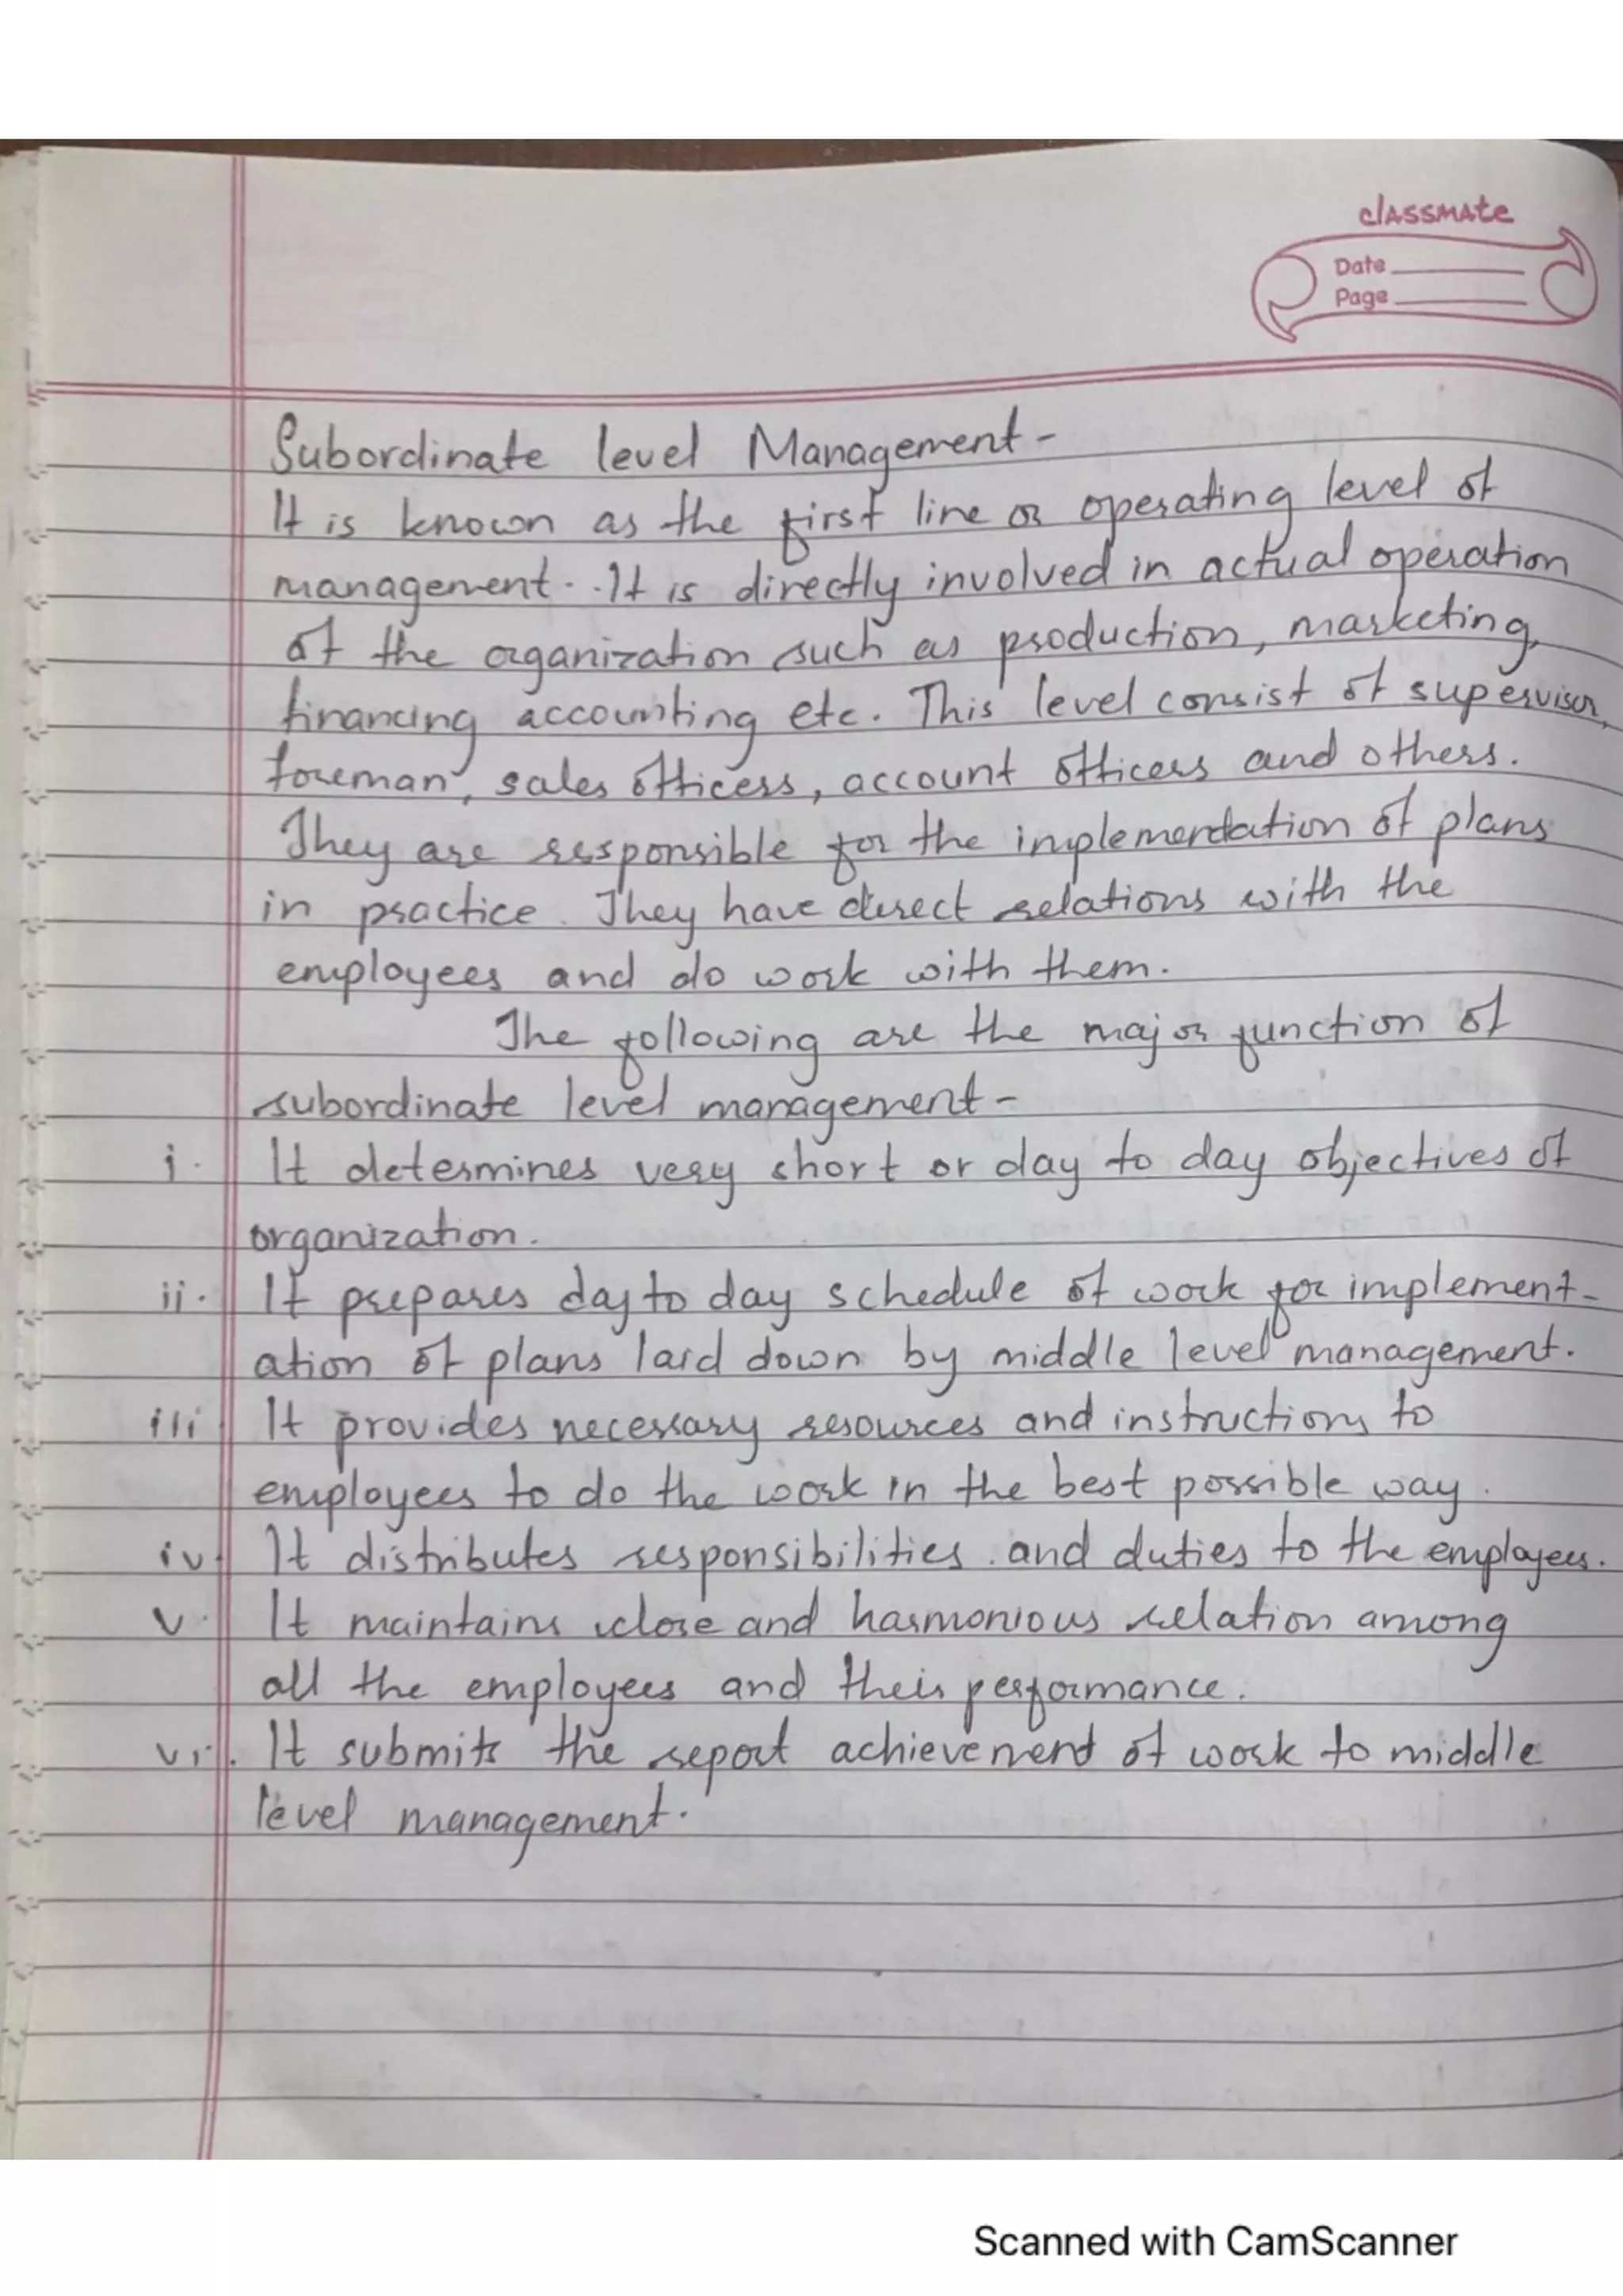 classmate
Date
Page
Subordinate level Management -
It is known as the first line or operating level of
management. It is directly involved in actual operation
of the organization such as production, marketing,
financing accounting etc. This level consist of supervisor,
foreman, sales officers, account officers and others.
They are responsible for the implementation of plans
in practice. They have direct relations with the
employees and do work with them.
The following are the major function of
subordinate level management -
i. It determines very short or day to day objectives of
organization.
ii. It prepares day to day schedule of work for implement-
ation of plans laid down by middle level management.
iii It provides necessary resources and instructions to
employees to do the work in the best possible way.
iv. It distributes responsibilities and duties to the employees.
v. It maintains close and harmonious relation among
all the employees and their performance.
vi. It submits the report achievement of work to middle
level management.
Scanned with CamScanner